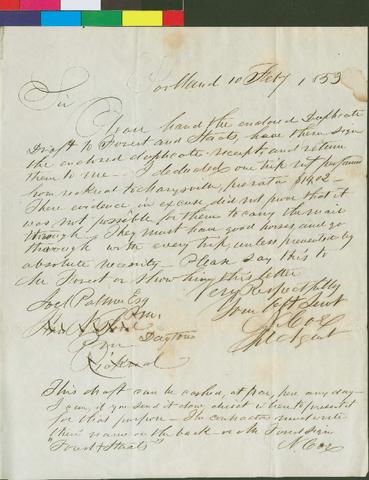 Portland 10 Feby 1853
Sir
Please hand the enclosed Duplicate
Draft to Forest and Staats, have them sign
the enclosed duplicate receipts and return
them to me — I deducted one trip not performed
from to Marysville, prorata $19.02 —
Their evidence in excuse, did not prove that it
was not possible for them to carry the mail
through — They must have good horses, and go
through with every trip, unless prevented by
absolute necessity — Please say this to
Mr Forest or show him this letter
Very Respectfully
Joel Palmer Esq
Your Obt Servt
P.M.
N. Coe
Dayton
Agent
This draft can be cashed, at par, here any day —
I can, if you send it down direct
for that purpose — The contractors must write
their name on the back
"Forest & Staats"
N. Coe